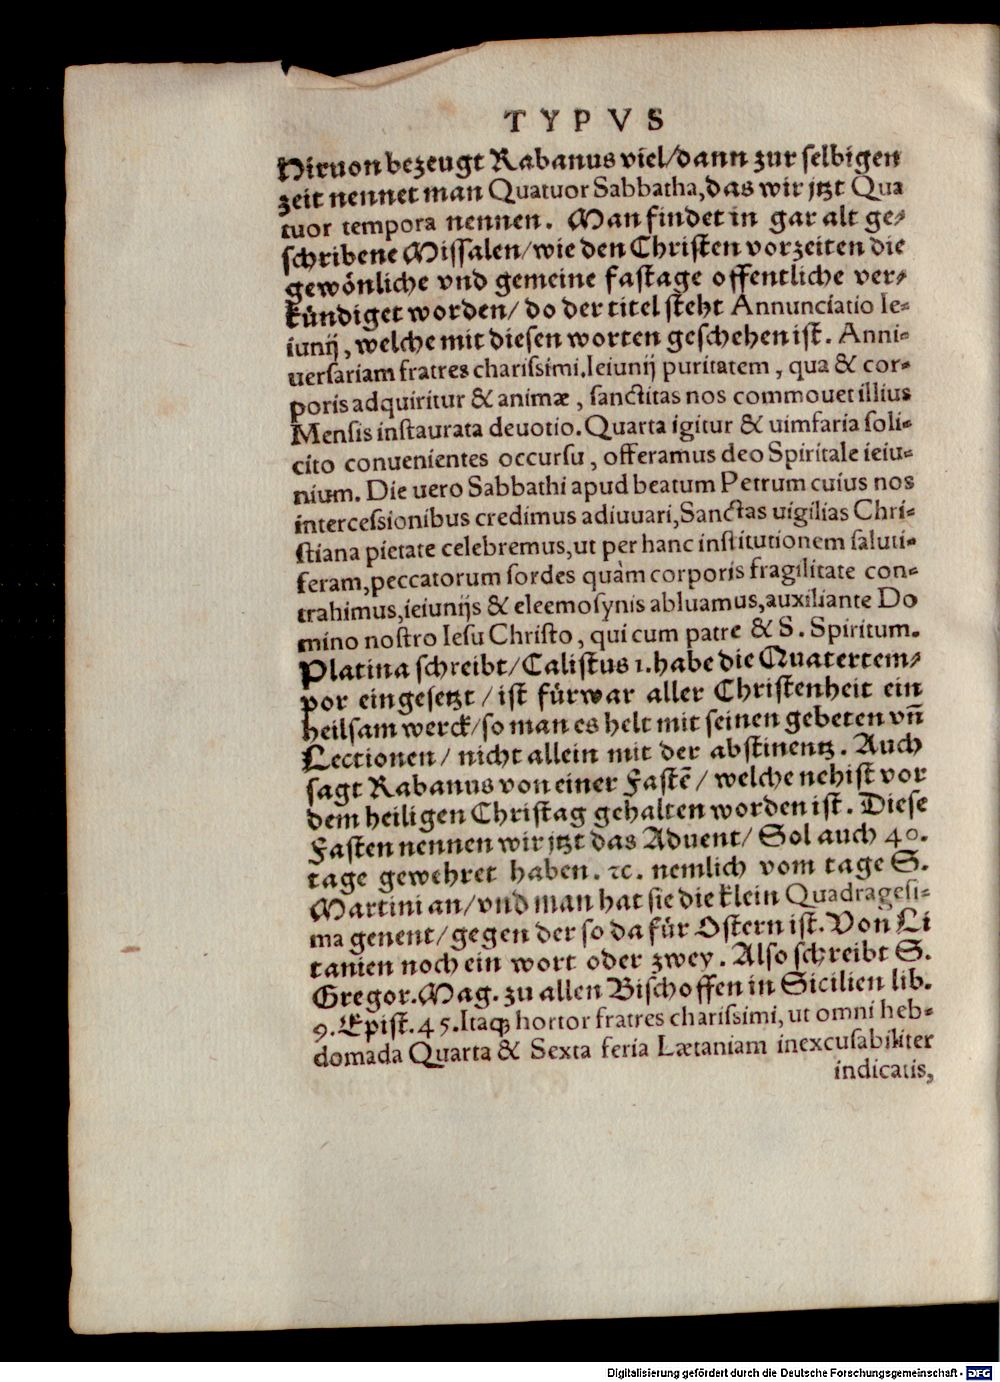 TYPVS
Hiruon bezeugt Rabanus viel/dann zur selbigen
zeit nennet man Quatuor Sabbatha,das wir jtzt Qua
tuor tempora nennen. Man findet in gar alt ge⸗
schribene Missalen/wie den Christen vorzeiten die
gewönliche vnd gemeine fastage offentliche ver⸗
kündiget worden/ do der titel steht Annunciatio Ie⸗
iunij, welche mit diesen worten geschehen ist. Anni⸗
uersariam fratres charissimi.Ieiunij puritatem, qua & cor⸗
poris adquiritur & animæ, sanctitas nos commouet illius
Mensis instaurata deuotio.Quarta igitur & uimfaria soli⸗
cito conuenientes occursu, offeramus deo Spiritale ieiu⸗
nium. Die uero Sabbathi apud beatum Petrum cuius nos
intercessionibus credimus adiuuari,Sanctas uigilias Chri⸗
stiana pietate celebremus,ut per hanc institutionem saluti⸗
feram,peccatorum sordes quàm corporis fragilitate con⸗
trahimus,ieiunijs & eleemosynis abluamus,auxiliante Do
mino nostro Iesu Christo, qui cum patre & S. Spiritum.
Platina schreibt/Calistus 1.habe die Quatertem⸗
por eingesetzt/ist fürwar aller Christenheit ein
heilsam werck/so man es helt mit seinen gebeten vñ
Lectionen/ nicht allein mit der abstinentz. Auch
sagt Rabanus von einer Fastē/ welche nehist vor
dem heiligen Christag gehalten worden ist. Diese
Fasten nennen wir jtzt das Aduent/ Sol auch 40.
tage gewehret haben. ꝛc. nemlich vom tage S.
Martini an/vnd man hat sie die klein Quadragesi⸗
ma genent/gegen der so da für Ostern ist. Von Li
tanien noch ein wort oder zwey. Also schreibt S.
Gregor.Mag. zu allen Bischoffen in Sicilien lib.
9.Epist.45.Itaqꝫ hortor fratres charissimi, ut omni heb⸗
domada Quarta & Sexta feria Lætaniam inexcusabiliter
indicatis,
Digitalisierung gefördert durch die Deutsche Forschungsgemeinschaft - DFG